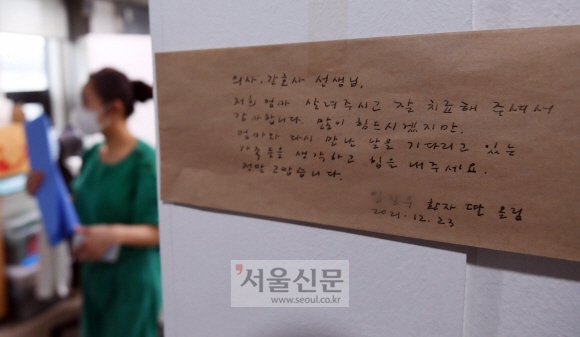 의사, 간호사 선생님,
저희 엄마 살려주시고 잘 치료해 주셔서
감사합니다. 많이 힘드시겠지만,
엄마와 다시 만날 날을 기다리고 있는
가족들을 생각하고 힘을 내주세요.
정말 고맙습니다.
환자 딸 올림
2021. 12. 23
서울신문
www.seoul.co.kr